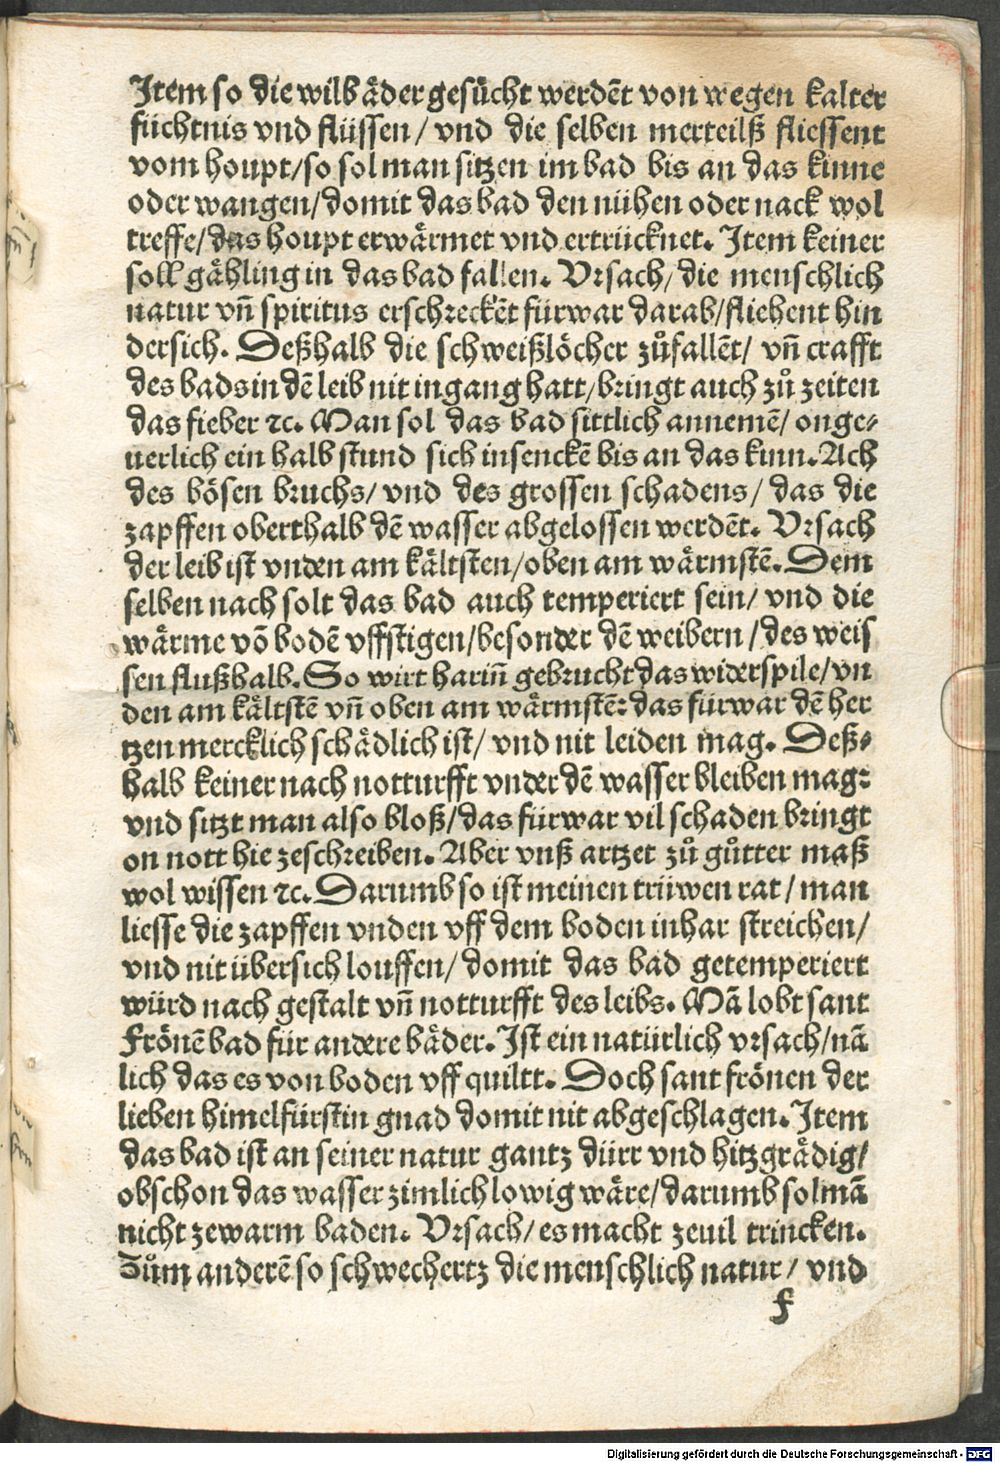 Item so die wilb äder gesücht werdẽt von wegen kalter
füchtnis vnd flüssen/ vnd die selben merteilß fliessent
vom houpt/so sol man sitzen im bad bis an das kinne
oder wangen/domit das bad den nühen oder nack wol
treffe/das houpt erwärmet vnd ertrücknet. Item keiner
soll gähling in das bad fallen. Vrsach/die menschlich
natur vñ spiritus erschreckẽt fürwar darab/fliehent hin
dersich. Deßhalb die schweißlöcher zůfallẽt/ vñ crafft
des bads in dẽ leib nit ingang hatt/bringt auch zů zeiten
das fieber ꝛc. Man sol das bad sittlich annemẽ/ onge⸗
uerlich ein halb stund sich insenckẽ bis an das kinn. Ach
des bösen bruchs/ vnd des grossen schadens/ das die
zapffen oberthalb dẽ wasser abgelossen werdẽt. Vrsach
der leib ist vnden am kältsten/oben am wärmstẽ. Dem
selben nach solt das bad auch temperiert sein/ vnd die
wärme võ bodẽ vffstigen/besonder dẽ weibern/des weis
sen flußhalb. So wirt hariñ gebrucht das widerspile/vn
den am kältstẽ vñ oben am wärmstẽ: das fürwar dẽ her
tzen mercklich schädlich ist/ vnd nit leiden mag. Deß⸗
halb keiner nach notturfft vnder dẽ wasser bleiben mag:
vnd sitzt man also bloß/das fürwar vil schaden bringt
on nott hie zeschreiben. Aber vnß artzet zů gůtter maß
wol wissen ꝛc. Darumb so ist meinen trüwen rat/man
liesse die zapffen vnden vff dem boden inhar streichen/
vnd nit übersich louffen/domit das bad getemperiert
würd nach gestalt vñ notturfft des leibs. Mã lobt sant
Frönẽ bad für andere bäder. Ist ein natürlich vrsach/nã
lich das es von boden vff quiltt. Doch sant frönen der
lieben himelfürstin gnad domit nit abgeschlagen. Item
das bad ist an seiner natur gantz dürr vnd hitzgrädig/
obschon das wasser zimlich lowig wäre/darumb sol mã
nicht zewarm baden. Vrsach/es macht zeuil trincken.
Zům anderẽ so schwechertz die menschlich natur/ vnd
f
Digitalisierung gefördert durch die Deutsche Forschungsgemeinschaft - DFG